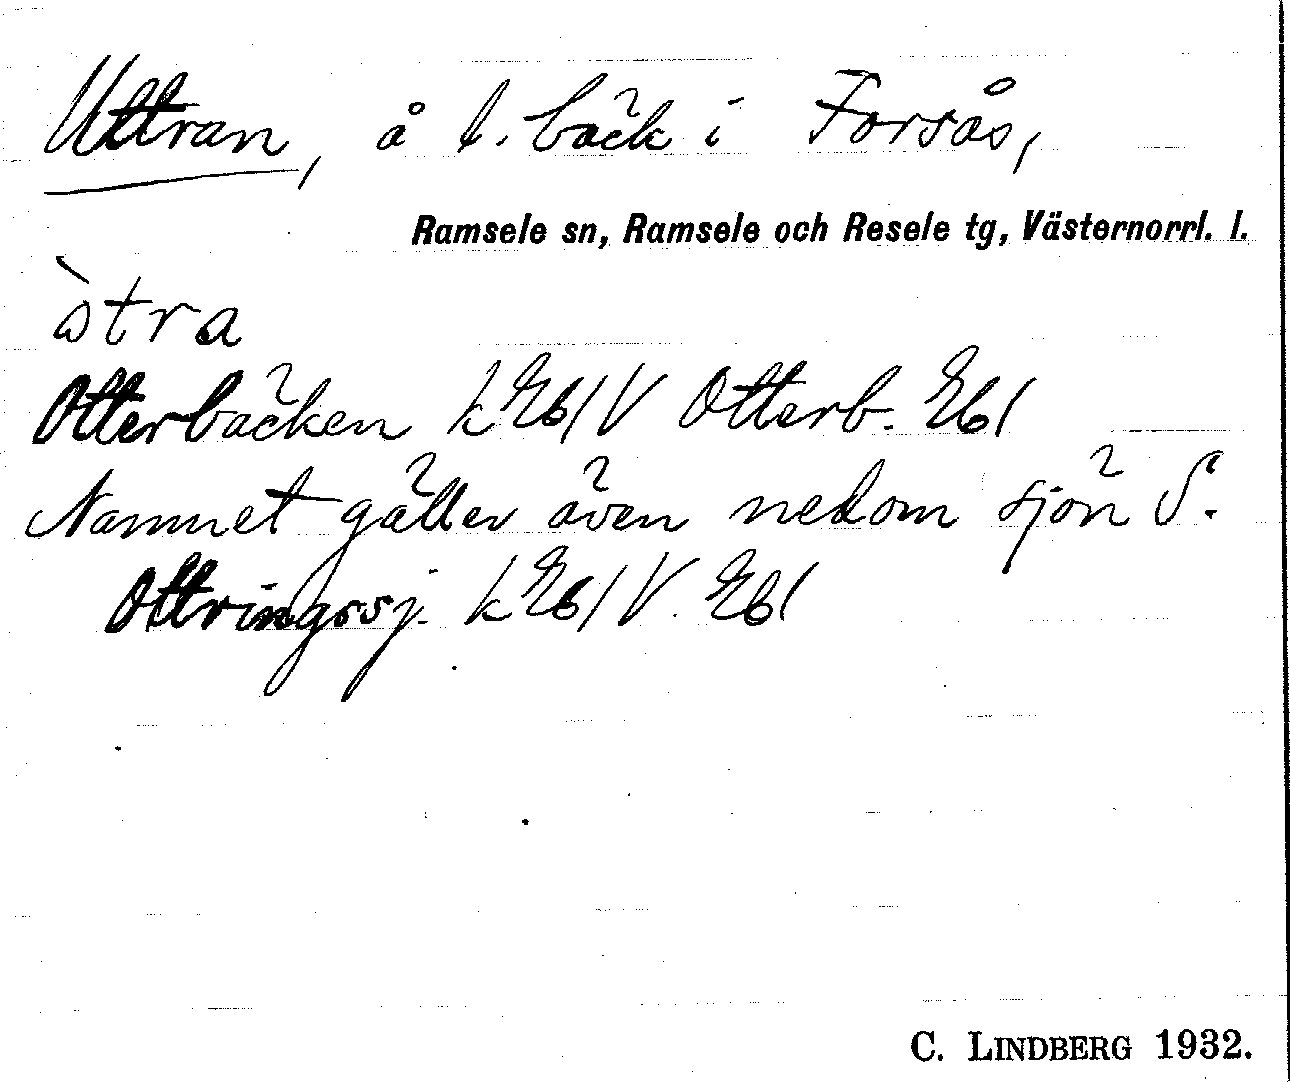 Uttran, å l. bäck i Forsås,
Ramsele sn, Ramsele och Resele tg, Västernorrl. l.
òtra
Otterbäcken k Ebl V Otterb. Ebl
Namnet gäller även nedom sjön S.
Ottringssj. k Ebl V. Ebl
C. LINDBERG 1932.